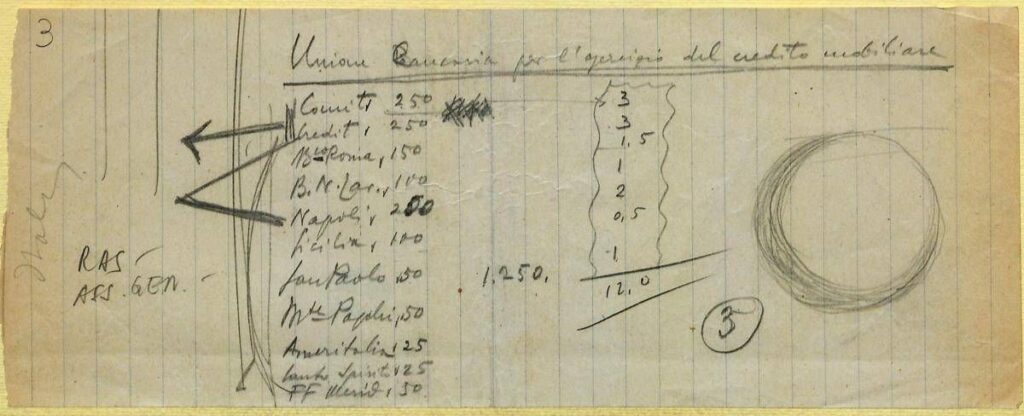 3
Unione Bancaria per l'esercizio del credito mobiliare
Comit, 250
Credit, 250
Bco Roma, 150
B. N. Lav., 100
Napoli, 200
Sicilia, 100
San Paolo, 50
Mte Paschi, 50
Ameritalia, 25
Santo Spirito, 25
FF Merid, 50
1.250.
3
3
1,5
1
2
0,5
1
12,0
5
RAS –
ASS. GEN. –